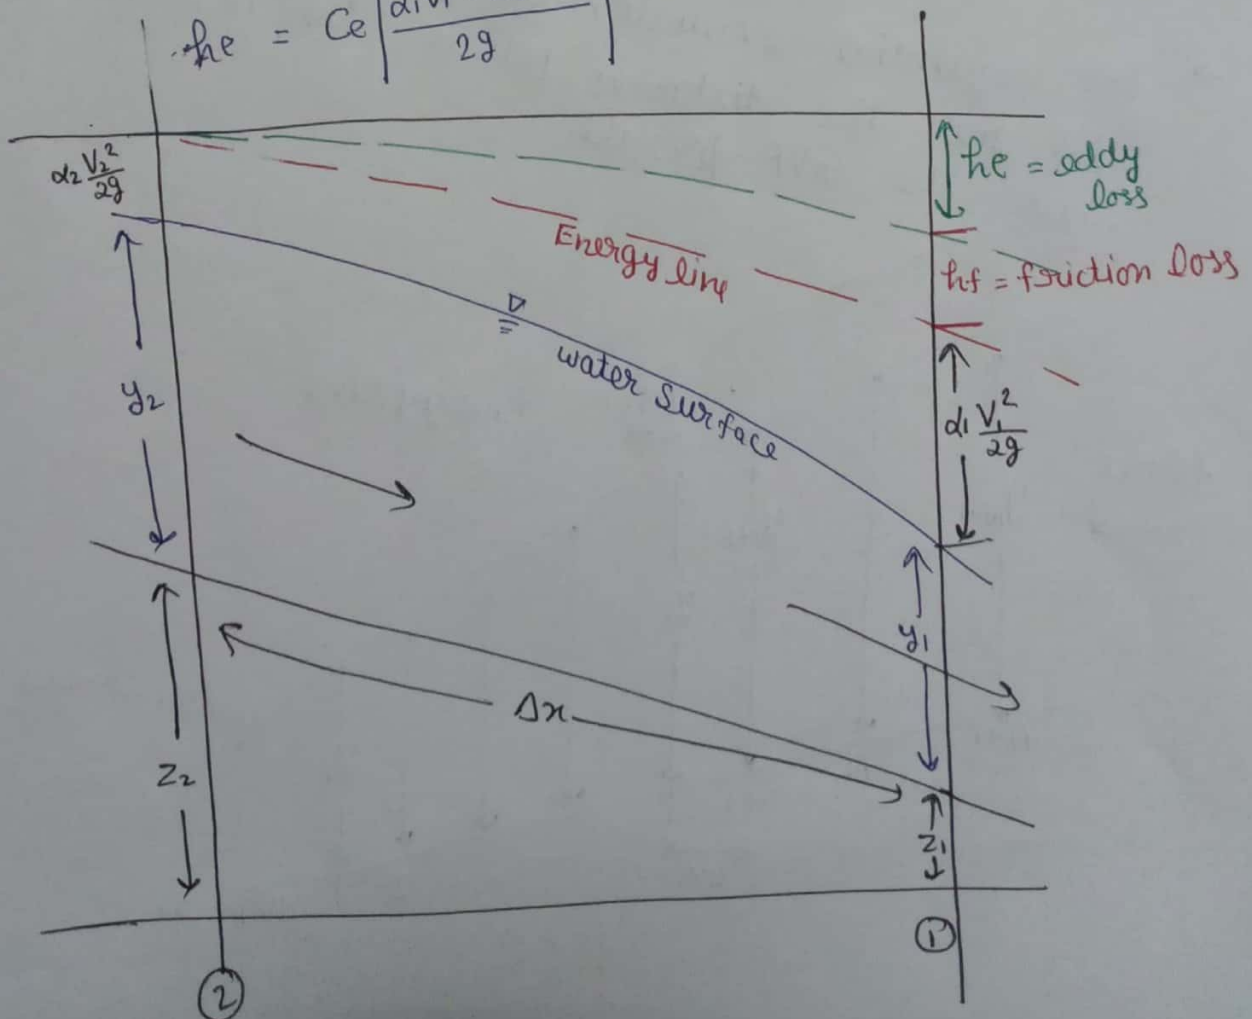 he = Ce
2g
α₂ V₂²/2g
he = eddy
loss
Energy line
hf = friction loss
water surface
y₂
α₁ V₁²/2g
y₁
Δx
z₂
z₁
1
2